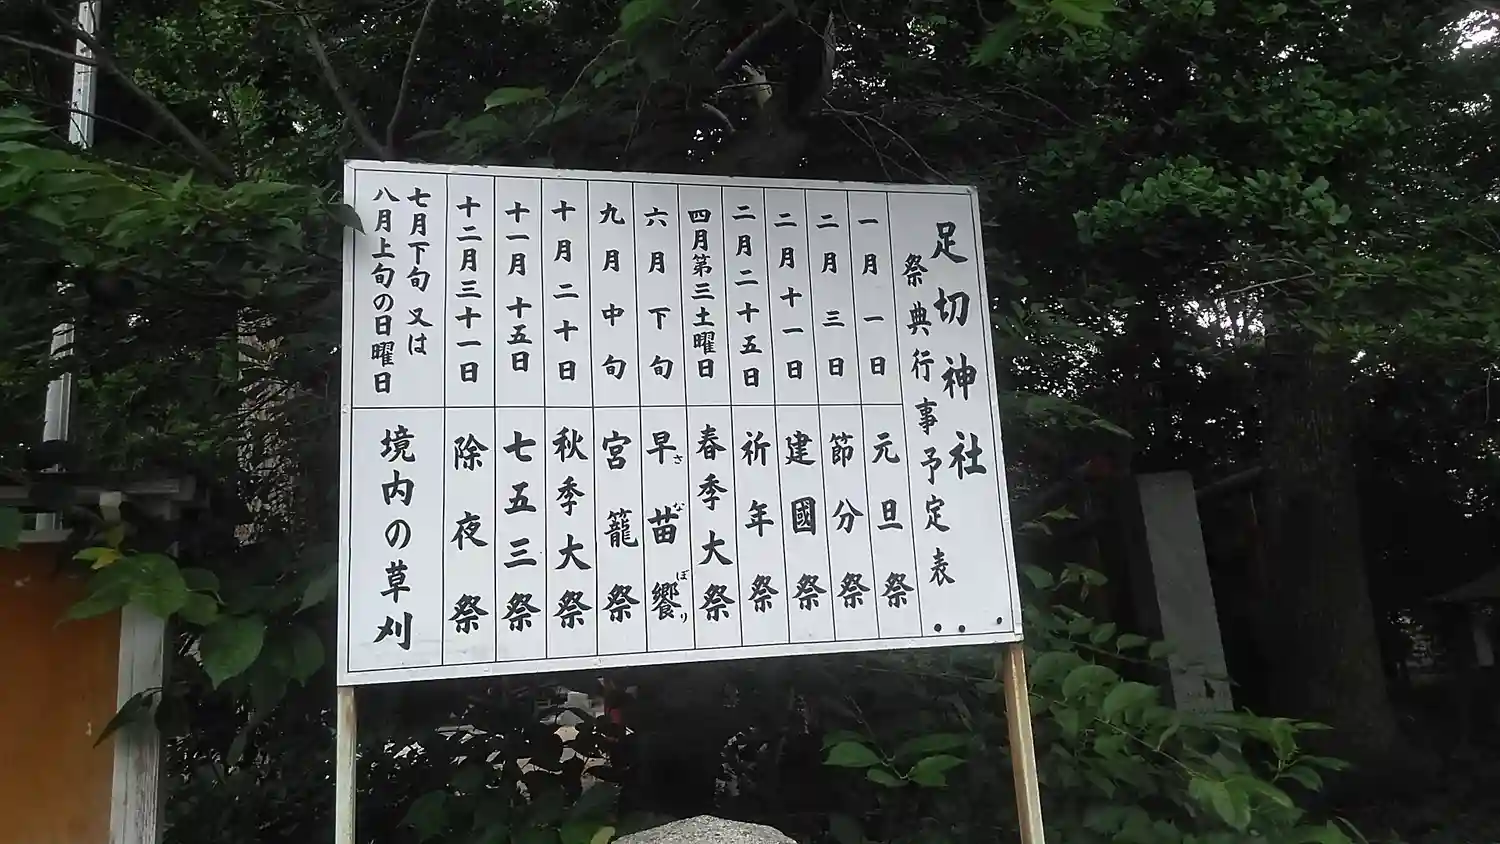 足切神社
祭典行事予定表
一月一日 元旦祭
二月三日 節分祭
二月十一日 建國祭
二月二十五日 祈年祭
四月第三土曜日 春季大祭
六月下旬 早苗饗祭
さなぼり
九月中旬 宮籠祭
十月二十日 秋季大祭
十一月十五日 七五三祭
十二月三十一日 除夜祭
七月下旬又は
八月上旬の日曜日
境内の草刈